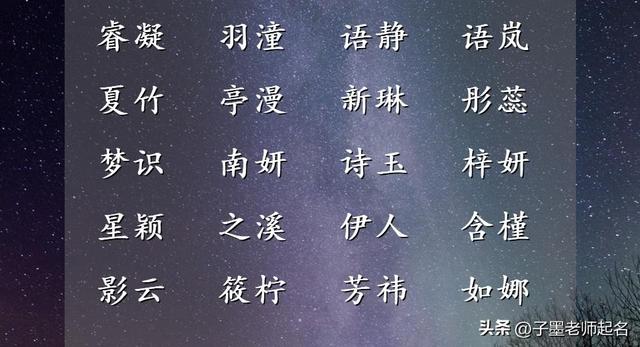 睿凝 羽潼 语静 语岚
夏竹 亭漫 新琳 彤蕊
梦识 南妍 诗玉 梓妍
星颖 之溪 伊人 含槿
影云 筱柠 芳祎 如娜
头条 @子墨老师起名